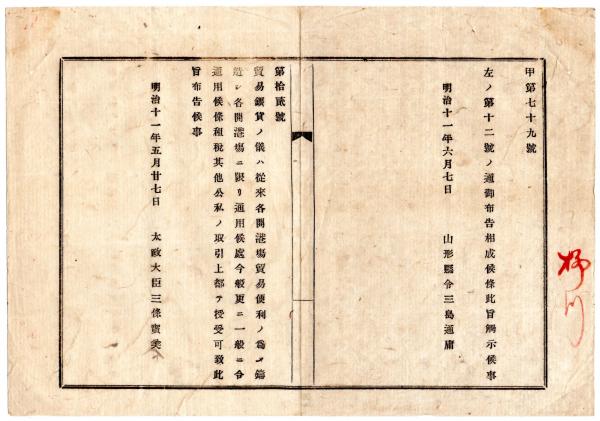 甲第七十九號
左ノ第十二號ノ通御布告相成候條此旨觸示候事
明治十一年六月七日
山形縣令三島通庸
第拾貳號
貿易銀貨ノ儀ハ從來各開港場貿易便利ノ爲メ鑄
造シ各開港場ニ限リ通用候處今般更ニ一般ニ令
通用候條租稅其他公私ノ取引上都テ授受可致此
旨布告候事
明治十一年五月廿七日
太政大臣三條實美